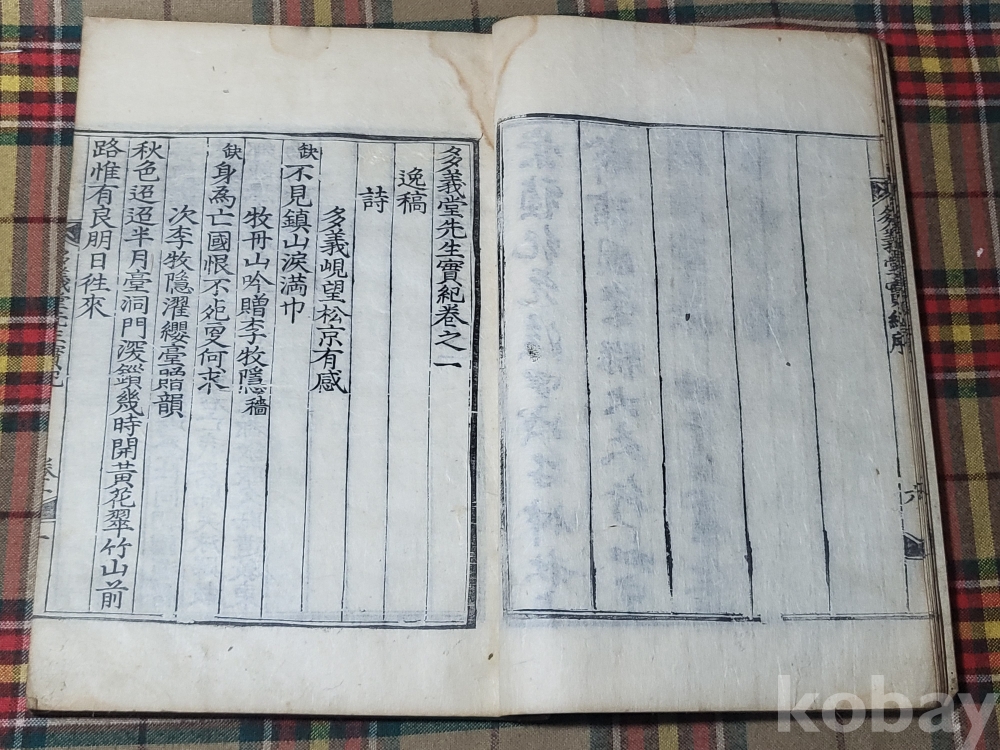 多義堂先生實紀序
六
多義堂先生實紀卷之一
逸稿
詩
多義峴望松京有感
缺不見鎮山淚滿巾
牧丹山吟贈李牧隱穡
缺身為亡國恨不死更何求
次李牧隱濯纓臺韻
秋色迢迢半月臺洞門深鎖幾時開黃花翠竹山前
路惟有良朋日往來
多義堂先生實紀 卷一 一
kobay